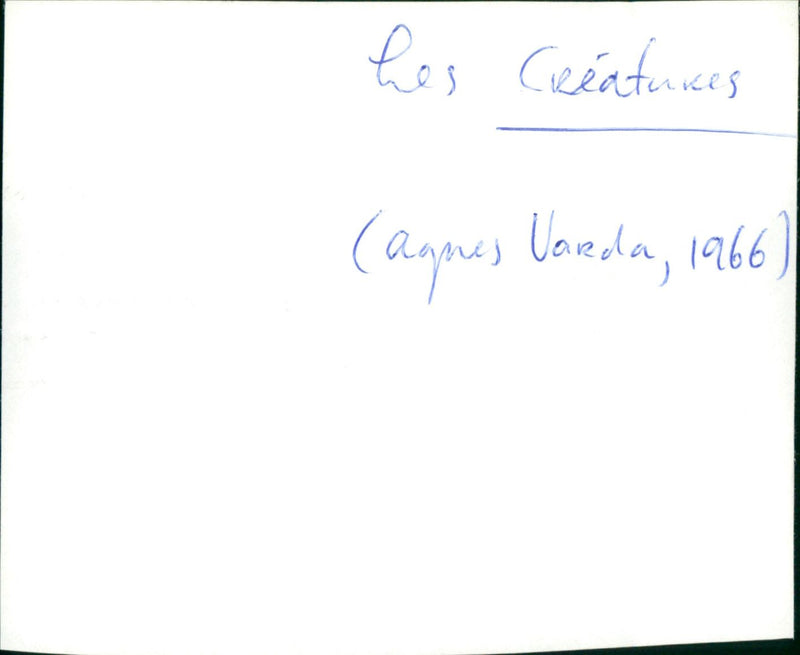 Les Créatures
(agnes Varda, 1966)